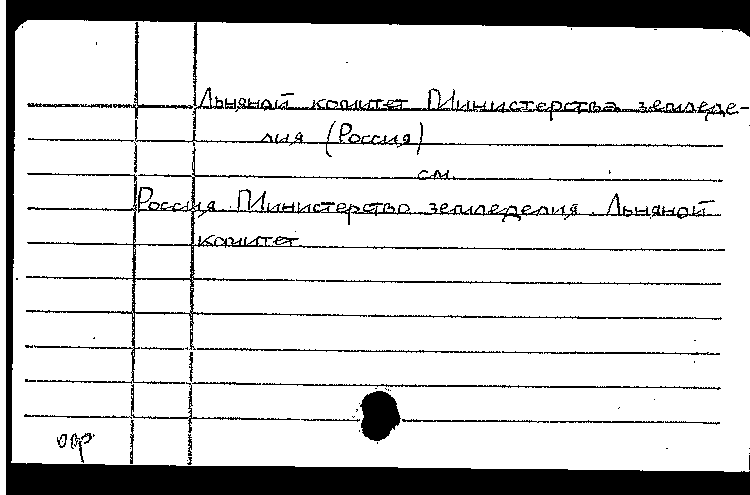 Льняной комитет Министерства земледе-
лия (Россия)
см.
Россия. Министерство земледелия. Льняной
комитет